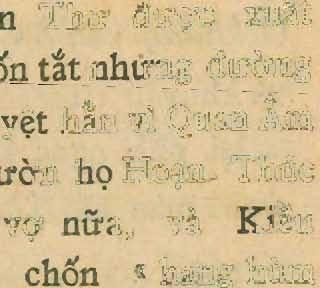 n Thư được xuất
ốn tắt nhưng đường
yệt hẳn vì Quan Âm
ườn họ Hoạn. Thúc
vợ nữa, và Kiều
chốn « hang hùm